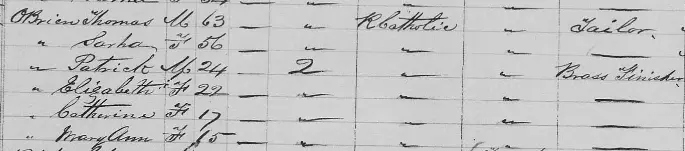 OBrien Thomas M 63 — " R Catholic " Tailor
" Sarha F 56 — " " " —
" Patrick M 24 — 2 " " Brass Finisher
" Elizabeth F 22 — " " " —
" Catherine F 17 — " " " —
" Mary Ann F 15 — " " " —